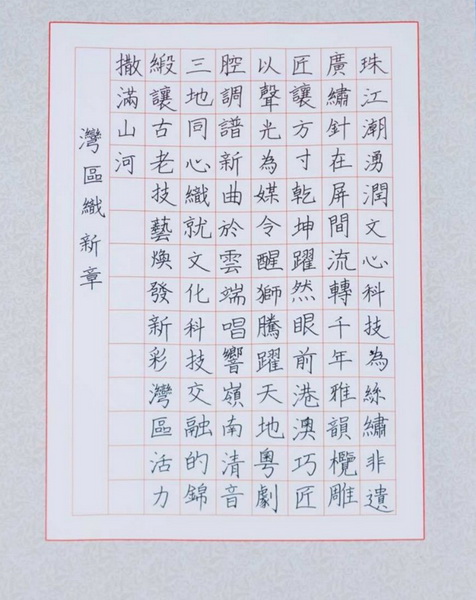 珠江潮湧潤文心科技為絲繡非遺
廣繡針在屏間流轉千年雅韻欖雕
匠讓方寸乾坤躍然眼前港澳巧匠
以聲光為媒令醒獅騰躍天地粵劇
腔調譜新曲於雲端唱響嶺南清音
三地同心織就文化科技交融的錦
緞讓古老技藝煥發新彩灣區活力
撒滿山河
灣區織新章